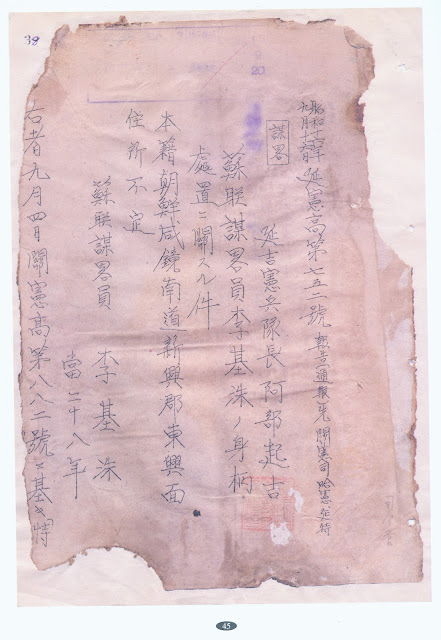 38
9
20
昭和十六年
延憲高第七五二號 報告(通報)先 關憲司 哈憲 延特
謀略
延吉憲兵隊長阿部起吉
蘇聯謀畧員李基洙ノ身柄
處置ニ關スル件
本籍朝鮮咸鏡南道新興郡東興面
住所不定
蘇聯謀畧員 李基洙
當二十八年
右者九月四日關憲高第八八二號ニ基キ特
45